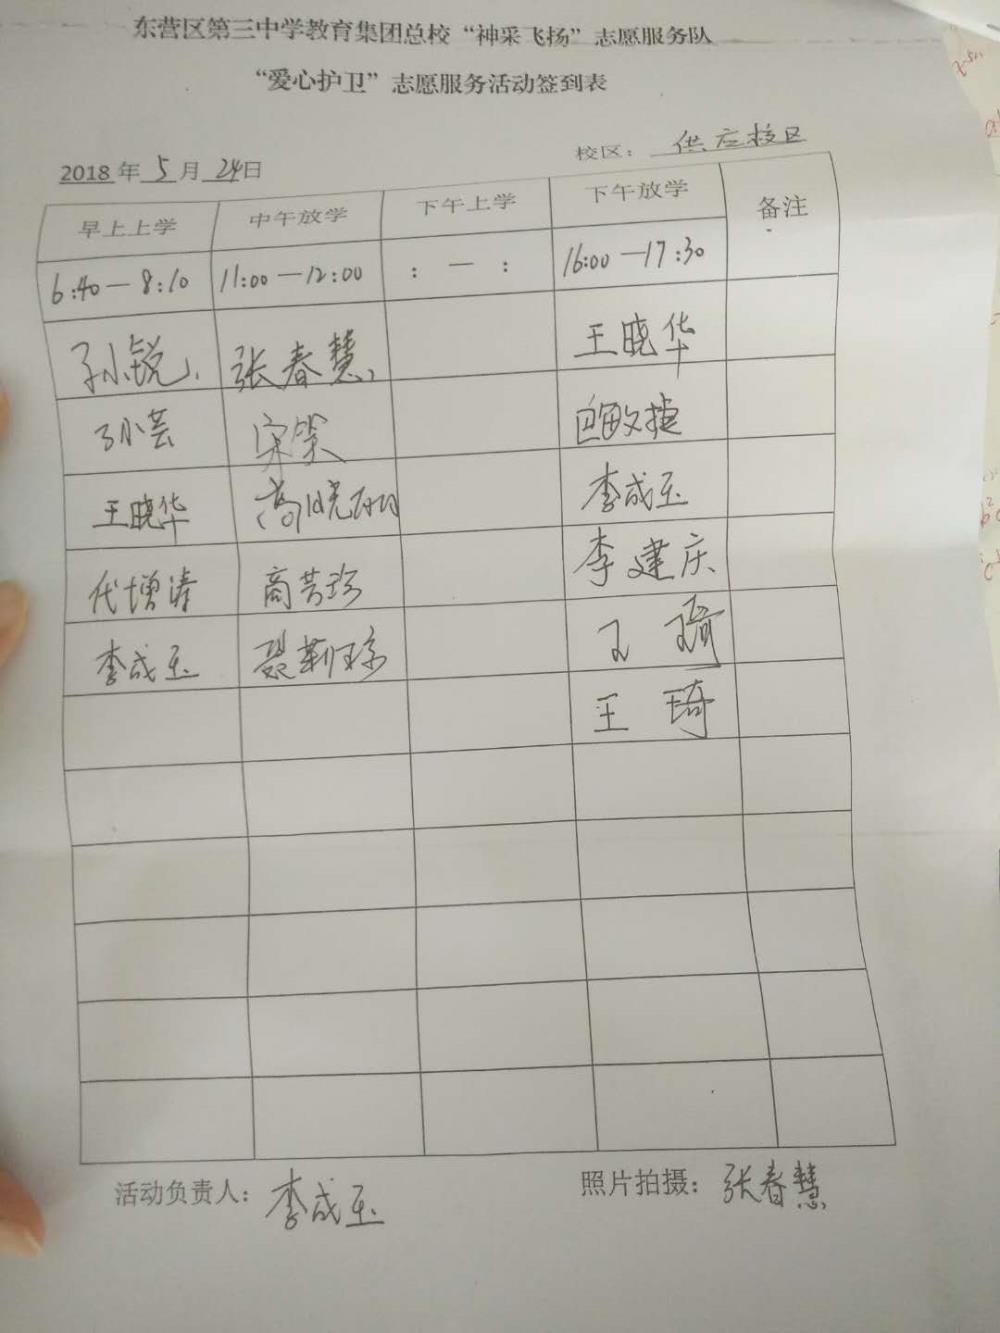 东营区第三中学教育集团总校“神采飞扬”志愿服务队
“爱心护卫”志愿服务活动签到表
2018 年 5 月 24日
校区： 供应校区
早上上学 中午放学 下午上学 下午放学 备注
6:40—8:10 11:00—12:00 : — : 16:00—17:30
孙锐 张春慧 王晓华
孙芸 宋笑 敏捷
王晓华 高晓 李成玉
代增涛 商芳珍 李建庆
李成玉 聂 王琦
王琦
活动负责人： 李成玉 照片拍摄： 张春慧